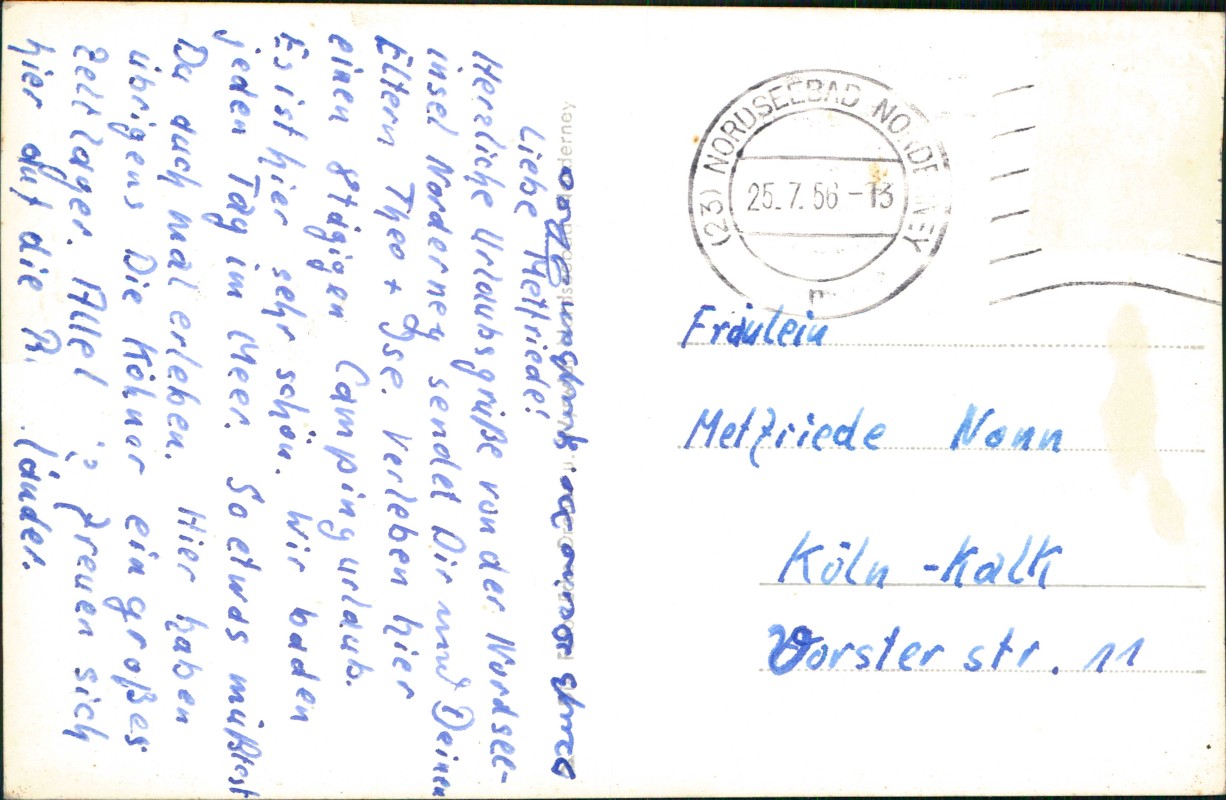 Liebe Metfriede!
Herzliche Urlaubsgrüße von der Nordsee-
insel Norderney sendet Dir und Deinen
Eltern Theo + Ilse. Verleben hier
einen 8tägigen Campingurlaub.
Es ist hier sehr schön. Wir baden
jeden Tag im Meer. So etwas müßtest
Du auch mal erleben. Hier haben
übrigens Die Kölner ein großes
Zeltlager. Alle freuen sich
hier auf die
länder.
(23) NORDSEEBAD NORDERNEY
25.7.56-13
Fräulein
Metfriede Nonn
Köln-Kalk
Vorster str. 11